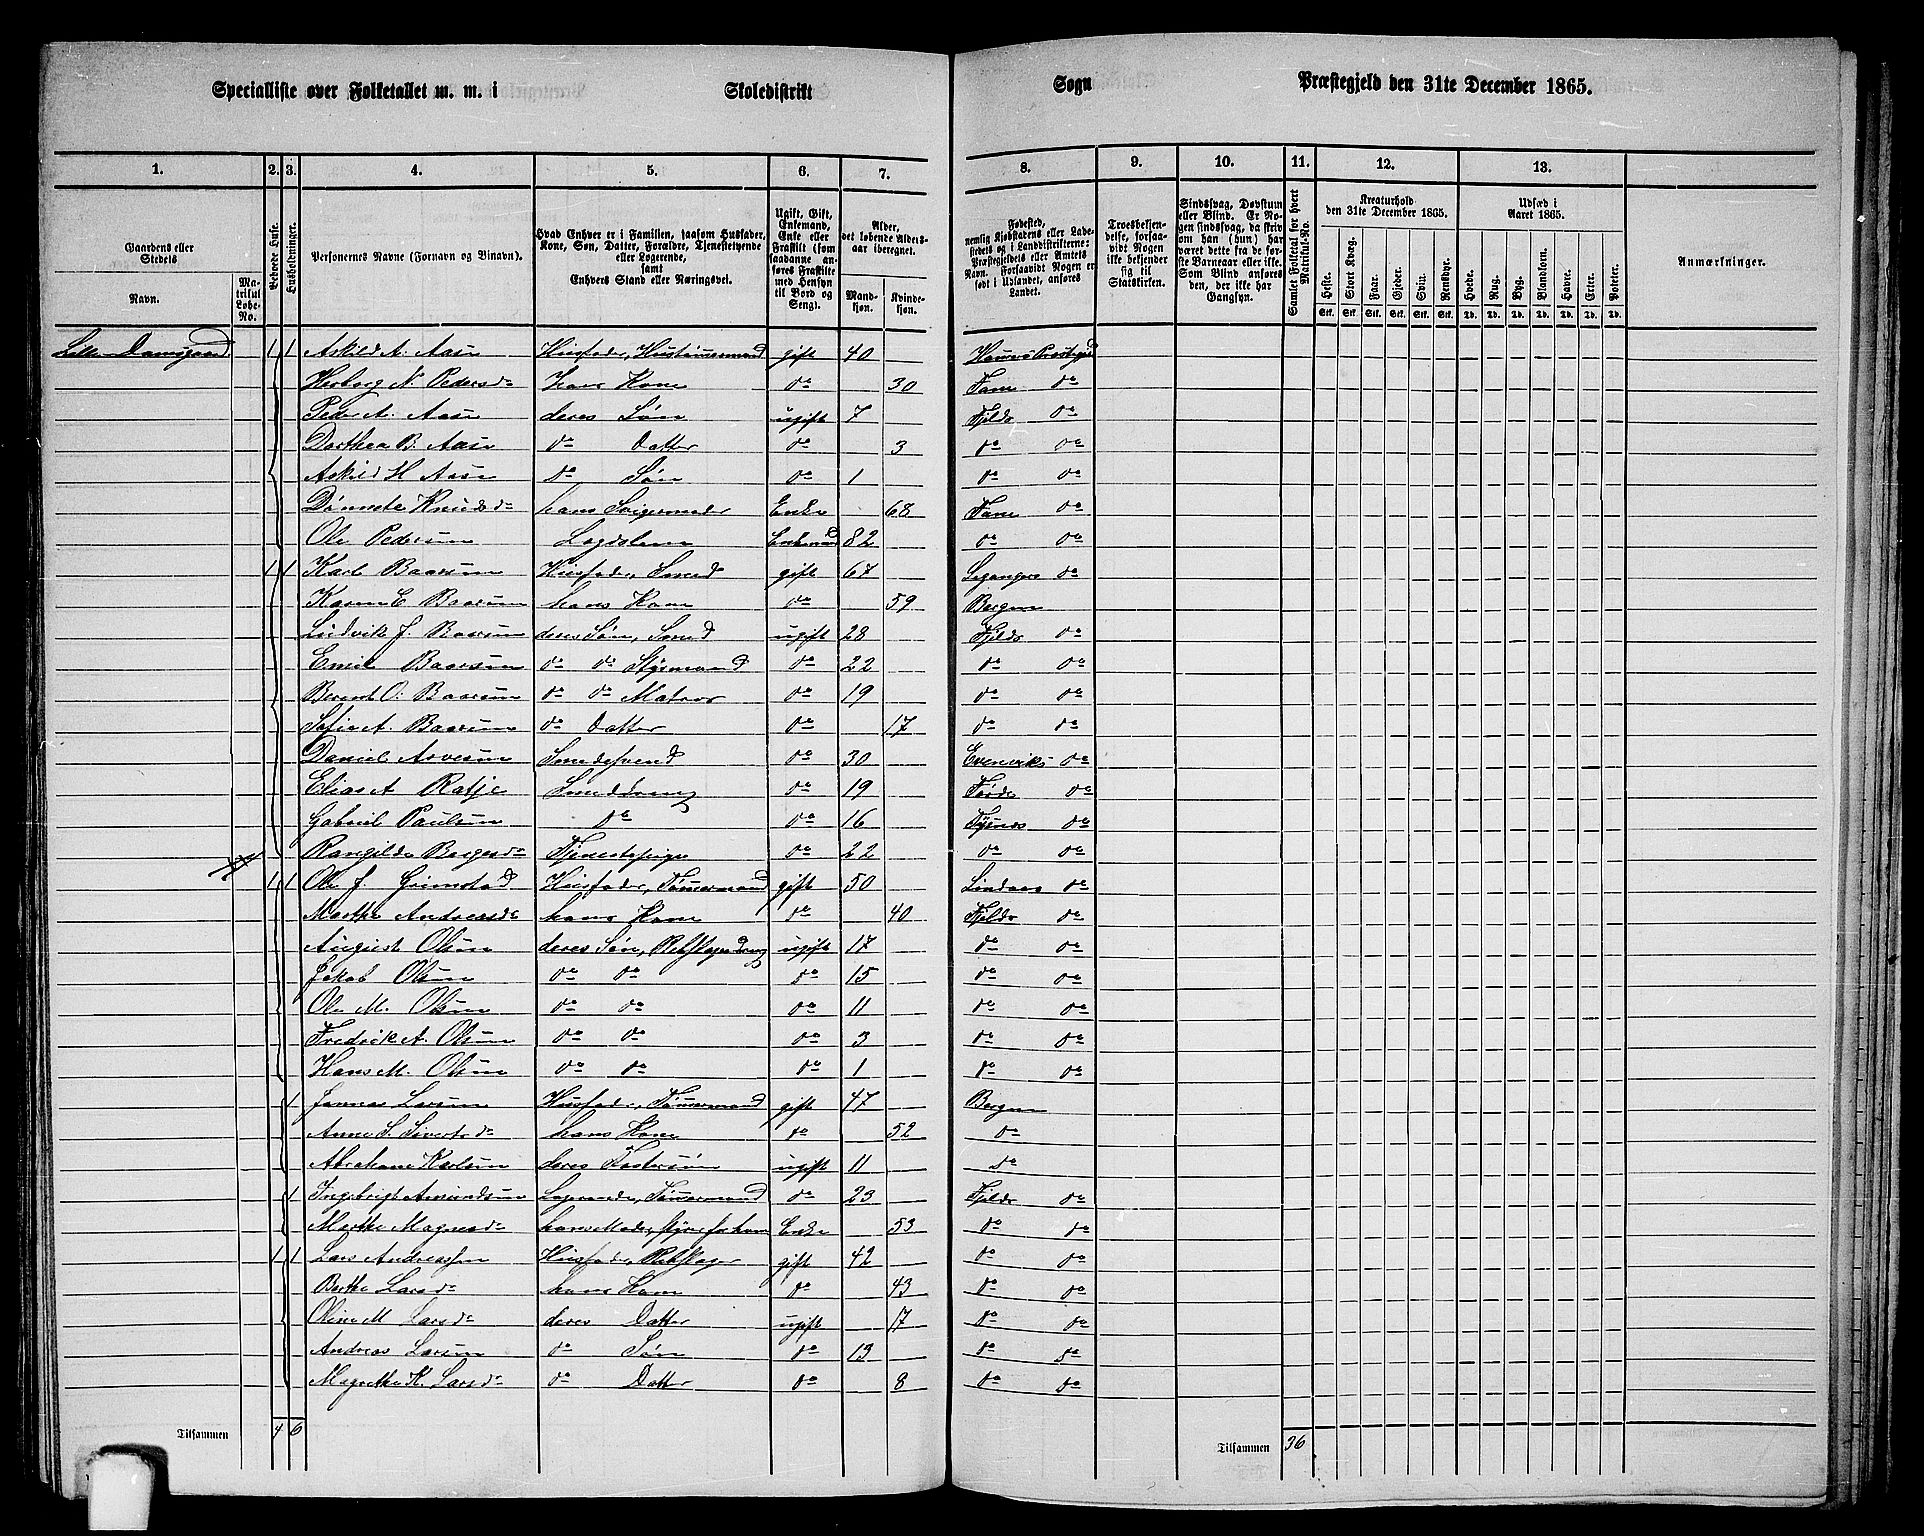 Specialliste over Folketallet m. m. i Skoledistrikt Sogn Præstegjeld den 31te December 1865.
1. 2. 3. 4. 5. 6. 7. 8. 9. 10. 11. 12. 13.
Gaardens eller Stedets Navn. Matrikul Løbe-No. Beboede Huse. Husholdninger. Personernes Navne (Fornavn og Binavn). Hvad Enhver er i Familien, saasom Husfader, Kone, Søn, Datter, Forældre, Tjenestetyende eller Logerende, samt Enhvers Stand eller Næringsvei. Ugift, Gift, Enkemand, Enke eller Fraskilt (som saadanne anføres Fraskilte med Hensyn til Bord og Seng). Alder, det løbende Aldersaar iberegnet. Mandkjøn. Kvindekjøn.
Fødested, nemlig Kjøbstadens eller Ladestedets og i Landdistrikterne: Præstegjeldets eller Amtets Navn. Forsaavidt Nogen er født i Udlandet, anføres Landet. Troesbekjendelse, forsaavidt Nogen ikke bekjender sig til Statskirken. Sindssvag, Døvstum eller Blind. Er Nogen sindssvag, da skriv om han (hun) har været dette fra de første Barneaar eller ikke. Som Blind anføres den, der ikke har Gangsyn. Samlet Folketal for hvert Matrikul-No. Kreaturhold den 31te December 1865. Udsæd i Aaret 1865. Anmærkninger.
Heste. Stort Kvæg. Faar. Gjeder. Sviin. Rensdyr. Hvede. Rug. Byg. Blandkorn. Havre. Erter. Poteter.
Stk. Stk. Stk. Stk. Stk. Stk. Td. Td. Td. Td. Td. Td. Td.
Lille Damsgaard 1 1 Askild A. Aase Husfader, Hustømermand gift 40 Præstegjd
Herborg N. Pedersdr hans Kone do 30 Fane do
Peder A. Aase deres Søn ugift 7 Fjelds do
Dorthea B. Aase do Datter do 3 do do
Askild H Aase do Søn do 1 do do
Knudsdr hans Svigermoder Enke 68 Fane do
Ole Pedersen Lægdslem Enkemand 82 do do
1 1 Karl Baarsen Husfader, Smed gift 67 do
Karen E. Baarsen hans Kone do 59 Bergen
Ludvik J. Baarsen deres Søn, Smed ugift 28 Fjelds do
Emil Baarsen do do Styrmand do 22 do do
Berent O. Baarsen do do Matros do 19 do do
Sofie A. Baarsen do Datter do 17 do do
Daniel Arvesen Smedesvend do 30 Evenviks do
Elias A Ratje Smeddreng do 19 Førde do
Gabriel Paulsen do do 16 Tysnes do
Rangilde Bergesdr Tjenestepige do 22 do do
1 1 Ole J. Grimstad Husfader, Tømermand gift 50 Lindaas do
Marthe Andersdr hans Kone do 40 Fjelds do
August Olsen deres Søn, Rebslagerdreng ugift 17 do do
Jakob Olsen do do do 15 do do
Ole M. Olsen do do do 11 do do
Fredrik A. Olsen do do do 3 do do
Hans M. Olsen do do do 1 do do
1 Larsen Husfader, Tømermand gift 47 Bergen
Anne S. Sivertsdr hans Kone do 52 do
Abraham Karlsen deres Fostersøn ugift 11 do
1 Ingebrigt Amundsen Logerende, Tømermand do 23 Fjelds do
Marthe Magnesdr hans Moder, styrer for ham Enke 53 do do
1 1 Lars Andreassen Husfader, Rebslager gift 42 do do
Berthe Larsdr hans Kone do 43 do do
Oline M Larsdr deres Datter ugift 17 do do
Andreas Larsen do Søn do 13 do do
Magrethe K. Larsdr do Datter do 8 do do
Tilsammen 4 6 Tilsammen 36